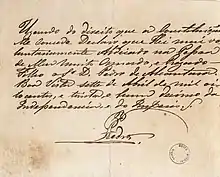 Uzando do direito que a Constituição
Me concede, Declaro, que Hei mui vo-
luntariamente Abdicado na Pessoa
de Meu muito Amado, e Prezado
Filho o Sr. D. Pedro de Alcantara
Boa Vista sete de Abril de mil oi
tocentos, e trinta e hum decimo da
Independencia e do Imperio.
Pedro